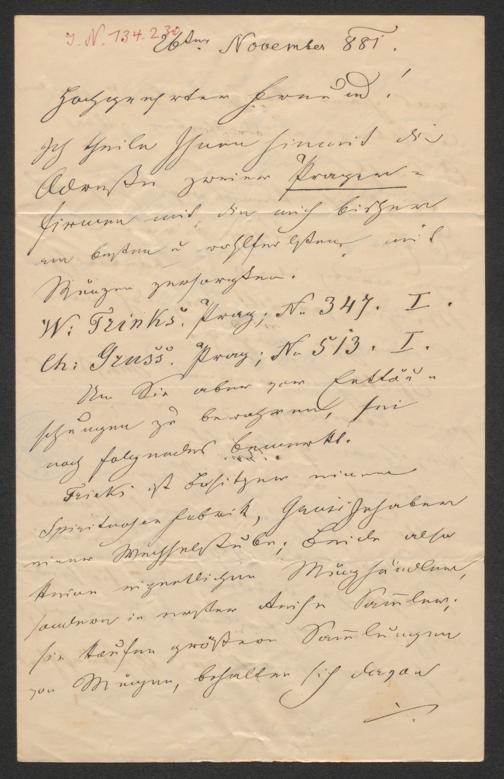 I. N. 134.230
26ten November 881.
Hochgeehrter Freund!
Ich theile Ihnen hiemit die
Adresse zweier Prager-
firmen mit, die mich bisher
am besten u wohlfeilsten, mit
Münzen versorgten.
W: Trinks. Prag; No 347. I.
Ch: Gruss. Prag; No 513. I.
Um Sie aber vor Enttäu-
schungen zu bewahren, sei
noch folgendes bemerkt.
Trinks ist Besitzer einer
Spirituosenfabrik, Inhaber
einer Wechselstube; Beide also
keine eigentlichen Münzhändler,
sondern in erster Reihe Sam̅ler;
sie kaufen größere Sam̅lungen
von Münzen, behalten sich davon